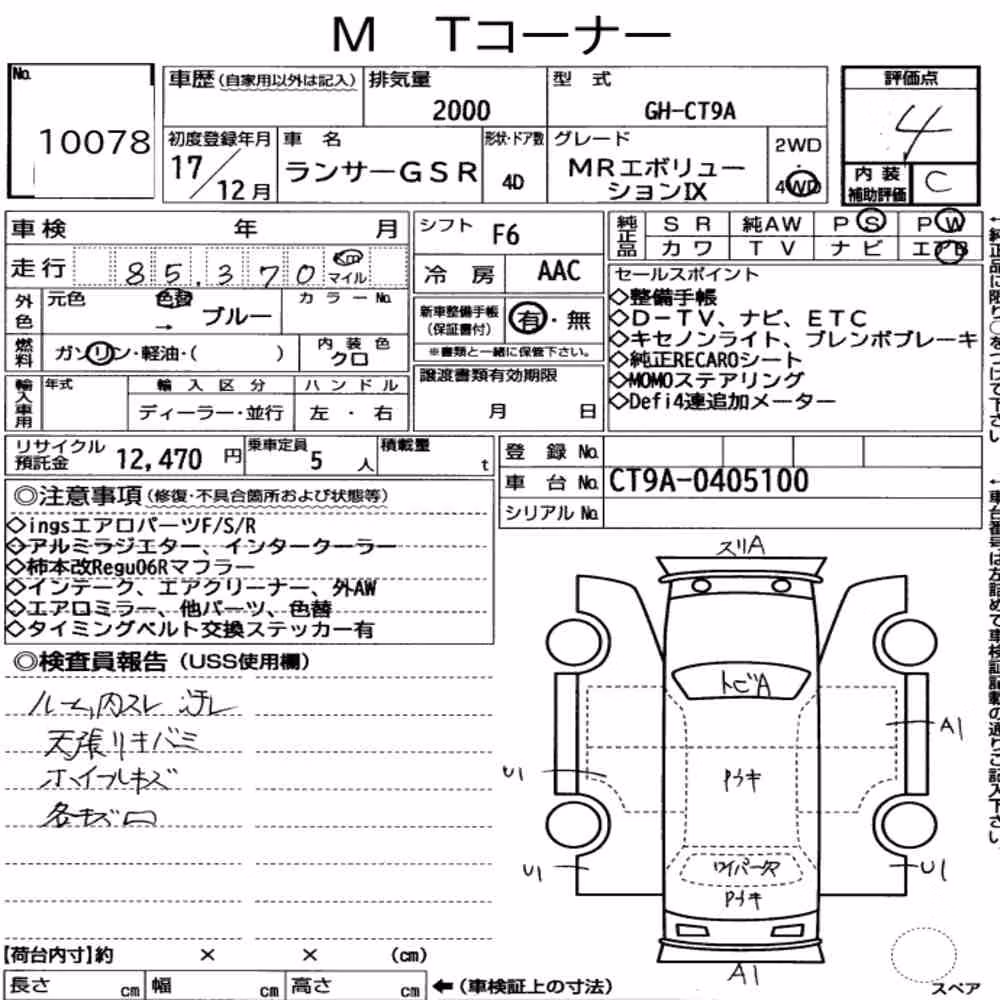 M Tコーナー
No. 10078
車歴 (自家用以外は記入)
排気量 2000
型式 GH-CT9A
評価点 4
内装補助評価 C
初度登録年月 17/12月
車名 ランサーGSR
形状・ドア数 4D
グレード MRエボリューションⅨ
2WD・4WD
車検 年 月
シフト F6
純正品
SR 純AW PS PW
カワ TV ナビ エアB
走行 85,370 km マイル
冷房 AAC
セールスポイント
◇整備手帳
◇D-TV、ナビ、ETC
◇キセノンライト、ブレンボブレーキ
◇純正RECAROシート
◇MOMOステアリング
◇Defi4連追加メーター
外色 元色 色替 → ブルー
カラーNo.
新車整備手帳(保証書付) 有・無
※書類と一緒に保管下さい。
燃料 ガソリン・軽油・( )
内装色 クロ
譲渡書類有効期限
月 日
輸入車用 年式
輸入区分 ディーラー・並行
ハンドル 左・右
リサイクル預託金 12,470円
乗車定員 5人
積載量 t
登録No.
車台No. CT9A-0405100
シリアルNo.
◎注意事項(修復・不具合箇所および状態等)
◇ingsエアロパーツF/S/R
◇アルミラジエター、インタークーラー
◇柿本改Regu06Rマフラー
◇インテーク、エアクリーナー、外AW
◇エアロミラー、他パーツ、色替
◇タイミングベルト交換ステッカー有
◎検査員報告(USS使用欄)
ルーム内スレ 汚レ
天張リキバミ
ホイールキズ
各キズ凹
スリA
トビA
A1
U1
Pウキ
U1
ワイパーキズ
U1
Pウキ
A1
スペア
【荷台内寸】約 × × (cm)
長さ cm 幅 cm 高さ cm ←(車検証上の寸法)